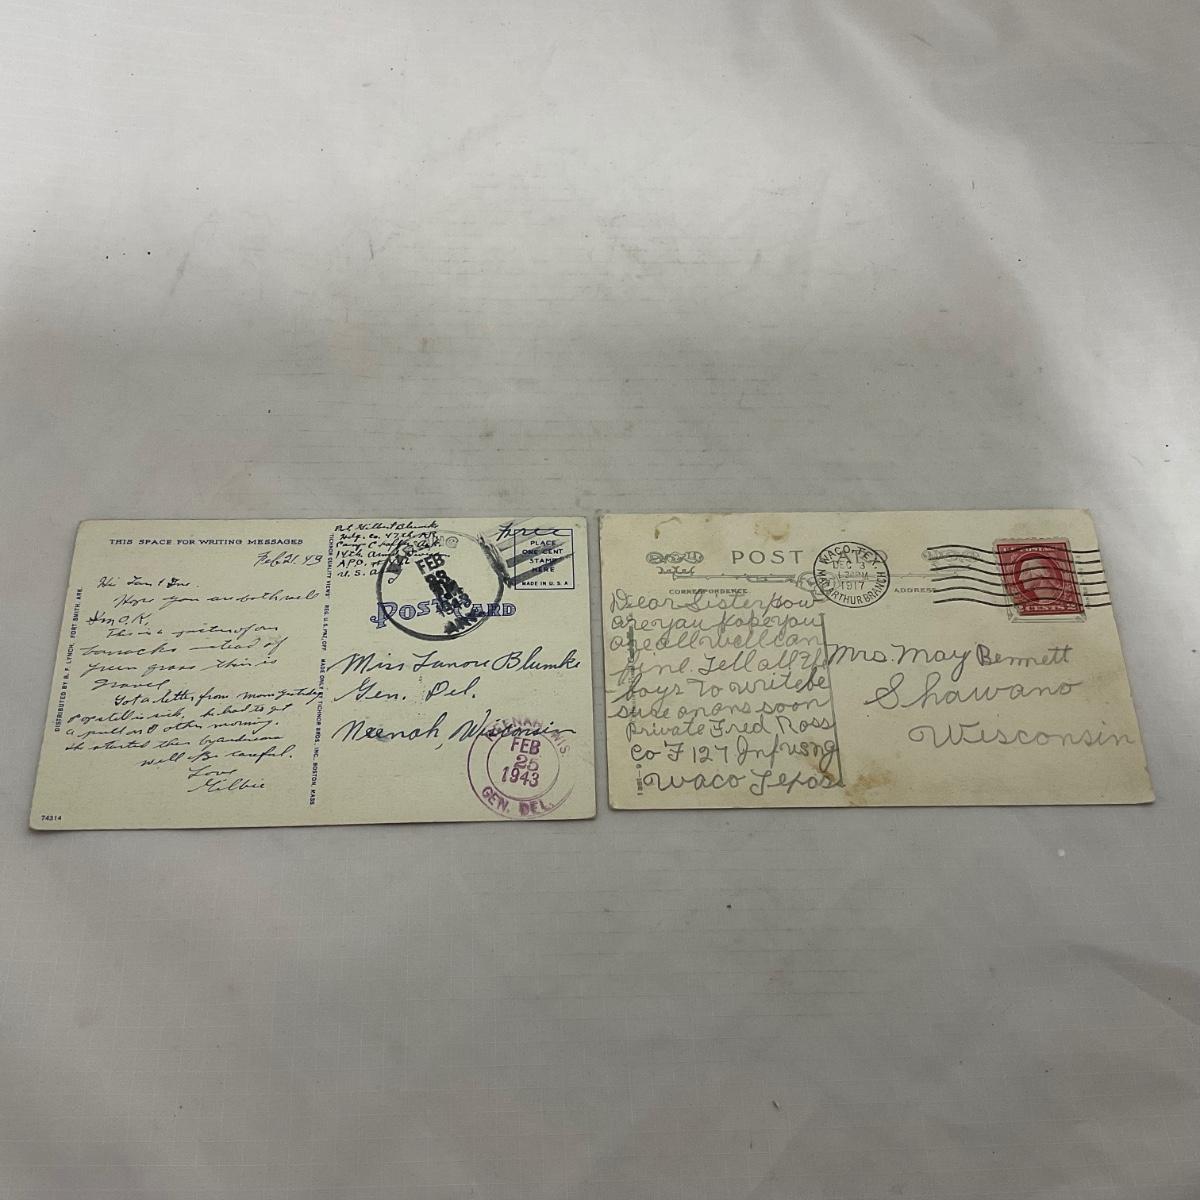 THIS SPACE FOR WRITING MESSAGES
Feb 21, 43
Hope you are both well
I'm O.K.
This is a picture of our
barracks instead of
green grass this is
gravel
Got a letter from mom yesterday
Pop still is sick, he had to get
a pill every other morning.
He started then
will be careful.
Love
Gilbie
DISTRIBUTED BY B. F. LYNCH, FORT SMITH, ARK.
74314
TICHNOR QUALITY VIEWS REG. U. S. PAT. OFF. MADE ONLY BY TICHNOR BROS., INC., BOSTON, MASS.
Pvt. Gilbert Blumke
Hdq. Co. 47th
Camp Chaffee Ark.
14th
A.P.O.
U.S.A
Free
PLACE
ONE CENT
STAMP
HERE
MADE IN U.S.A
FEB
1943
POST CARD
Miss Lanore Blumke
Gen. Del.
Neenah, Wisconsin
NEENAH WIS.
FEB
25
1943
GEN. DEL.
POST CARD
CORRESPONDENCE
ADDRESS
WACO, TEX.
DEC 3
1917
MAC ARTHUR BRANCH
Dear Sister how
are you hope you
are all well can
fine Tell all the
boys to write be
sure an ans soon
Private Fred Ross
Co F 127 Inf
Waco Texas
Mrs. May Bennett
Shawano
Wisconsin